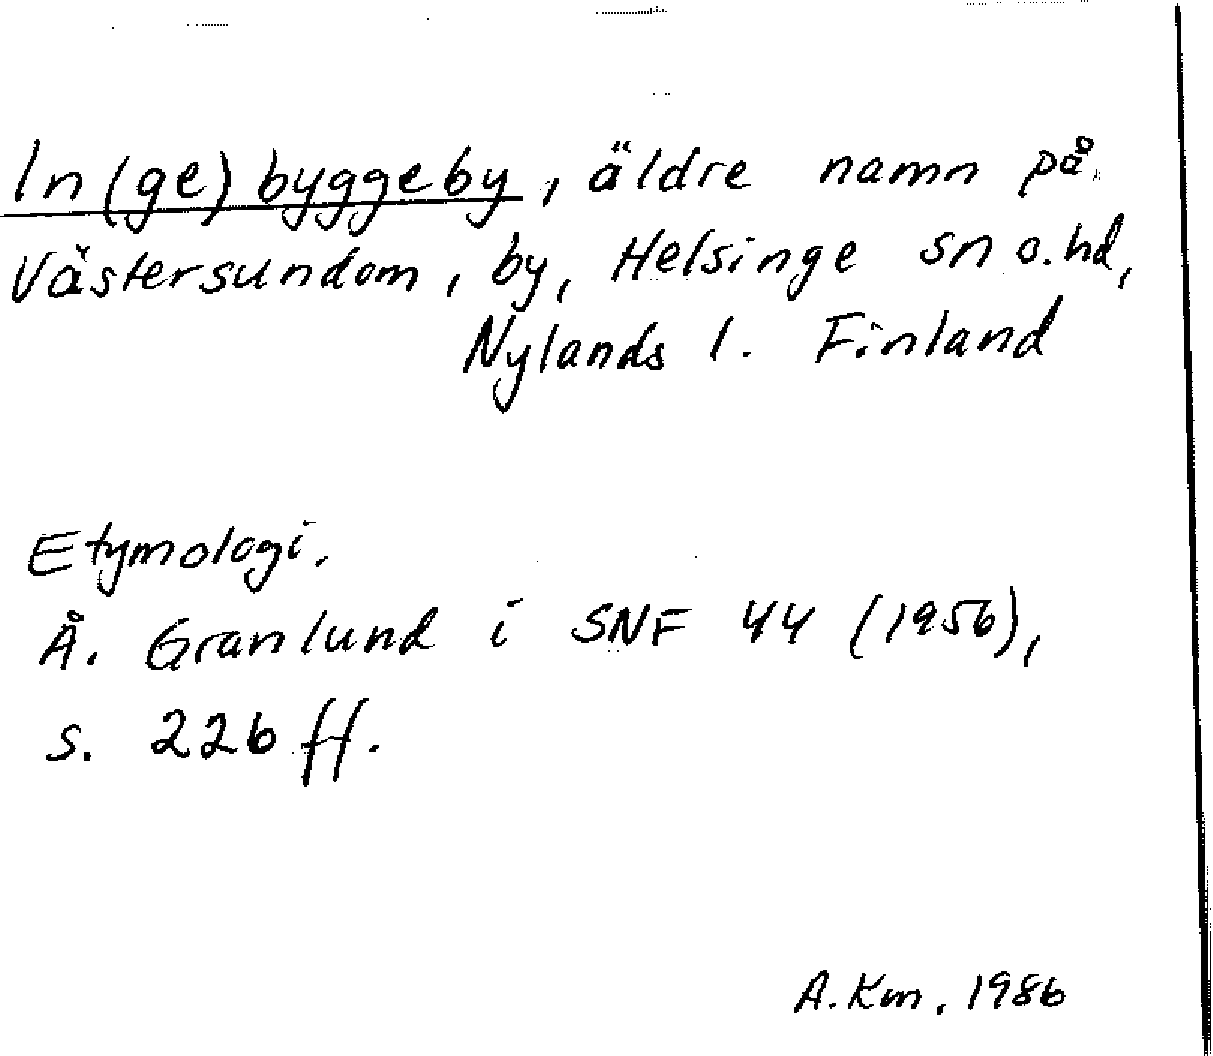 In(ge)byggeby, äldre namn på
Västersundom, by, Helsinge sn o. hd,
Nylands l. Finland
Etymologi.
Å. Granlund i SNF 44 (1956),
s. 226 ff.
A. Km. 1986